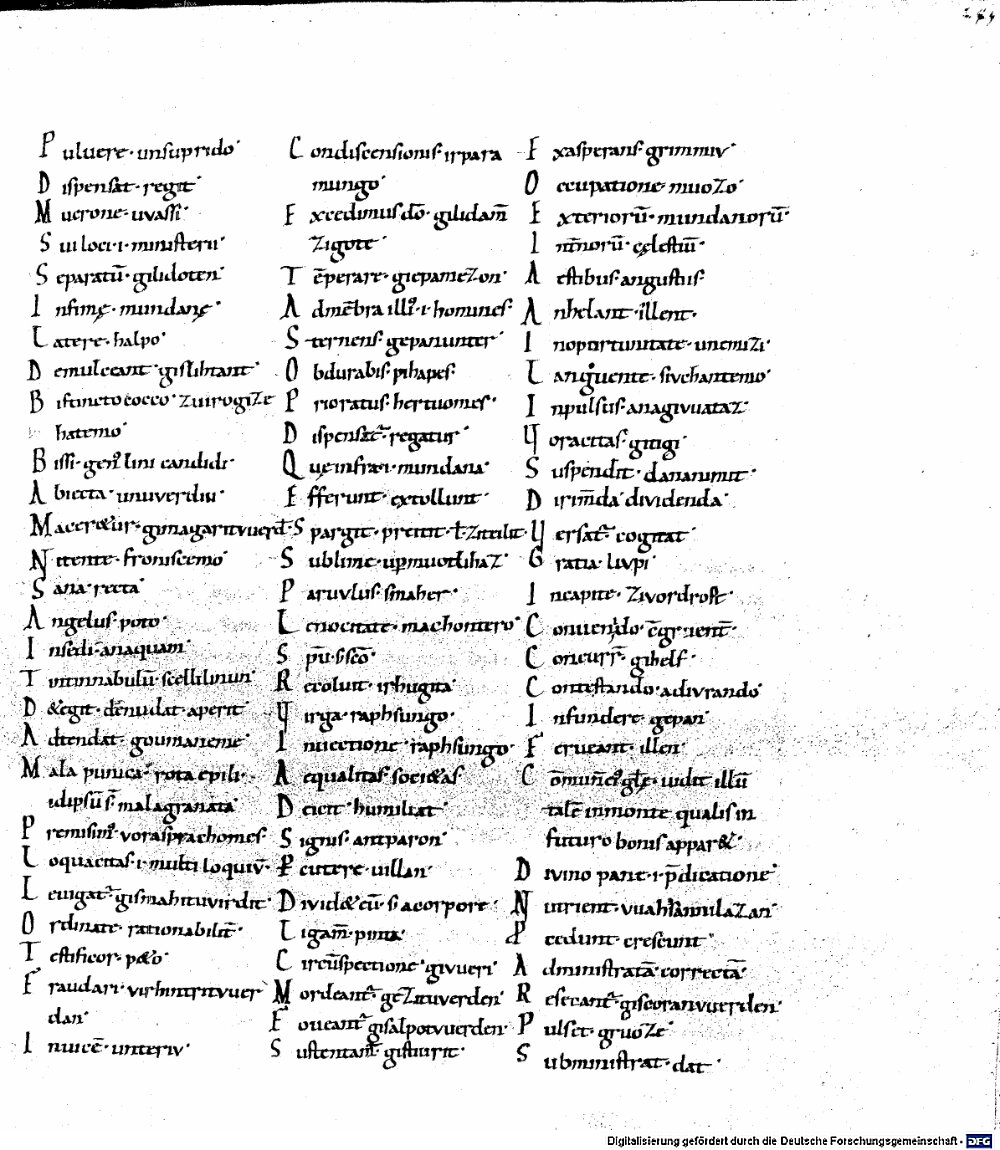 Puluere· unsuprido·
Dispensat· regit·
Mucrone· uvassi·
Sui loci· i· ministerii·
Separatū· gilidoten·
Infimę· mundanę·
Latere· halpo·
Demulceant· gislihtant·
Bistincto cocco· zuirogize
hatemo·
Bissi· geñ lini candidi·
Abiecta· unuuerdiu·
Macer&ur· gimagarituuerd·
Nitente· froniscemo·
Sana· recta·
Angelus· poto·
Insedi· anaquam·
Tintinnabulū· scellilinun·
D&egit· dēnudat· aperit·
Adtendat· goumaneme·
Mala punica· rota epili·
idipsū s̄· malagranata·
Premisim̄· vorasprachomes·
Loquacitas· i· multi loquiū·
Leuigat̄· gismahituvirdit·
Ordinate· rationabilit̄·
Testificor· p&o·
Fraudari· virhintirituuer
dan·
Inuicē· unteriv·
Condiscensionis· irpara
mungo·
Excedimus dō· gilidam̄
zigote·
Tēperare· giepamezon·
Admēbra illi᷒· i· homines·
Sternens· gepanunter·
Obdurabis· pihapes·
Prioratus· hertuomes·
Dispensat̄· regatur·
Quę infra· i· mundana·
Efferunt· extollunt·
Spargit· prettit· ł· zittilit·
Sublime·
Paruulus· sinaher·
Lenocitate· machontero·
Spū· s· scō·
Recoluit· irhugita·
Virga· raphsungo·
Inuectione· raphsungo·
Aequalitas· soci&as·
Deicit· humiliat·
Signis· antparon·
Petere· uillan·
Divid&· cū· s· a corpore·
Ligam̄· pinta·
Circūspectione· givueri·
Mordeant̄· gezituverden·
Foueant̄· gisalpotvuerden·
Sustentant̄· gistiurit·
Exasperans· grimmiv·
Occupatione· muozo·
Exteriorū· mundanorū·
Int̄norū· cęlestiū·
Aestibus· angustiis·
Anhelant· illent·
Inoportunitate· unemizi·
Languente· sivchantemo·
Inpulsus· anagivuataz·
Voracitas· gitigi·
Suspendit· dananimit·
Dirim̄da· dividenda·
Versat̄· cogitat·
Gratia· livpi·
Incapite· zivordrost·
Conuenido· c̄gruent̄·
Concurr̄· gihelf·
Contestando· adivrando·
Infundere· gepan·
Ferueant· illen·
Cōmuñ ei᷒ głę· uidit illū
talē inmonte qualis in
futuro bonis appar&·
Divino pane· i· p̄dicatione·
Nutrient·
Pcedunt· crescunt·
Administratā· correctā·
Reserant̄· gisceoranvuerden·
Pulset· gruoze·
Subministrat· dat·
Digitalisierung gefördert durch die Deutsche Forschungsgemeinschaft - DFG